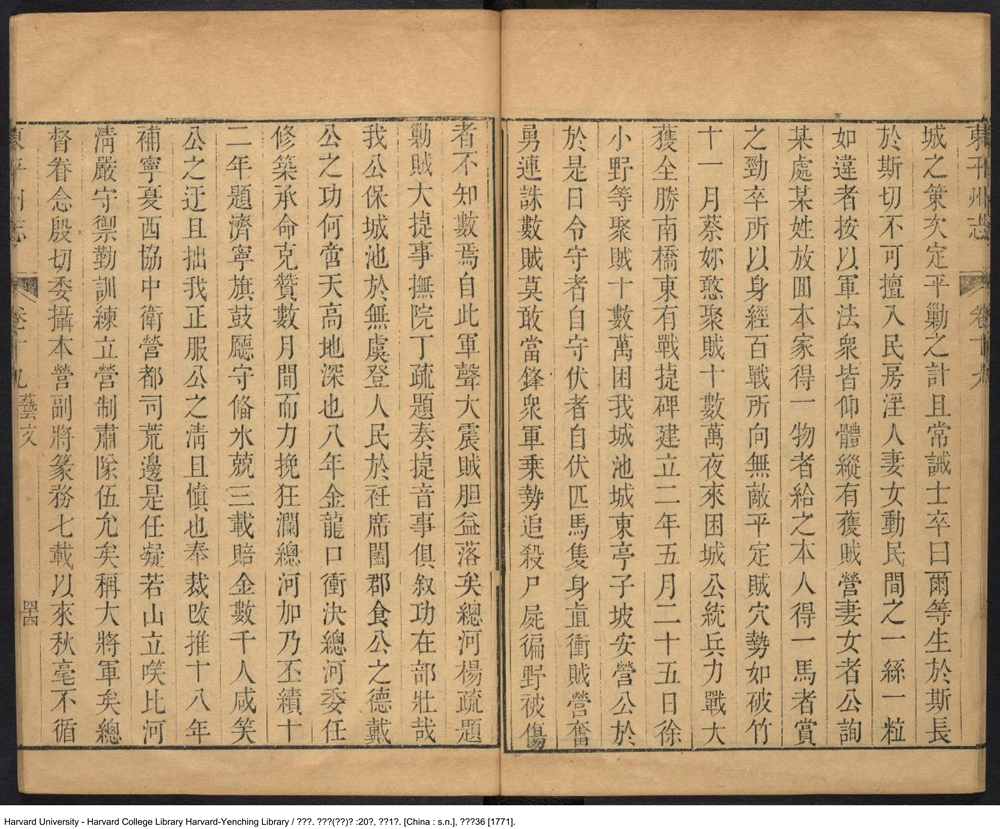 東平州志 卷十九
城之策次定平勦之計且常誡士卒曰爾等生於斯長
於斯切不可擅入民房淫人妻女動民間之一絲一粒
如違者按以軍法衆皆仰體縱有獲賊營妻女者公詢
某處某姓放囬本家得一物者給之本人得一馬者賞
之勁卒所以身經百戰所向無敵平定賊穴勢如破竹
十一月蔡妳憨聚賊十數萬夜來困城公統兵力戰大
獲全勝南橋東有戰捷碑建立二年五月二十五日徐
小野等聚賊十數萬困我城池城東亭子坡安營公於
於是日令守者自守伏者自伏匹馬隻身直衝賊營奮
勇連誅數賊莫敢當鋒衆軍乗勢追殺尸屍徧野被傷
者不知數焉自此軍聲大震賊胆益落矣總河楊疏題
勦賊大捷事撫院丁疏題奏捷音事俱叙功在部壯哉
我公保城池於無虞登人民於袵席闔郡食公之德戴
公之功何啻天高地深也八年金龍口衝決總河委任
修築承命克贊數月間而力挽狂瀾總河加乃丕績十
二年題濟寧旗鼓廳守偹氷兢三載賠金數千人咸笑
公之迂且拙我正服公之清且慎也奉裁改推十八年
補寧夏西協中衛營都司荒邊是任凝若山立喫比河
淸嚴守禦勤訓練立營制肅隊伍允矣稱大將軍矣總
督眷念殷切委攝本營副將篆務七載以來秋毫不循
東平州志 卷十九 藝文 四十四
Harvard University - Harvard College Library Harvard-Yenching Library / ???. ???(??)? :20?, ??1?. [China : s.n.], ???36 [1771].